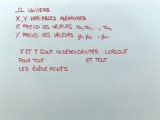 Ω UNIVERS
X, Y VARIABLES ALÉATOIRES
X PREND LES VALEURS x₁, x₂, ..., xₙ
Y PREND LES VALEURS y₁, y₂, ... yₘ
X ET Y SONT INDÉPENDANTES LORSQUE
POUR TOUT ET TOUT
LES ÉVÉNEMENTS